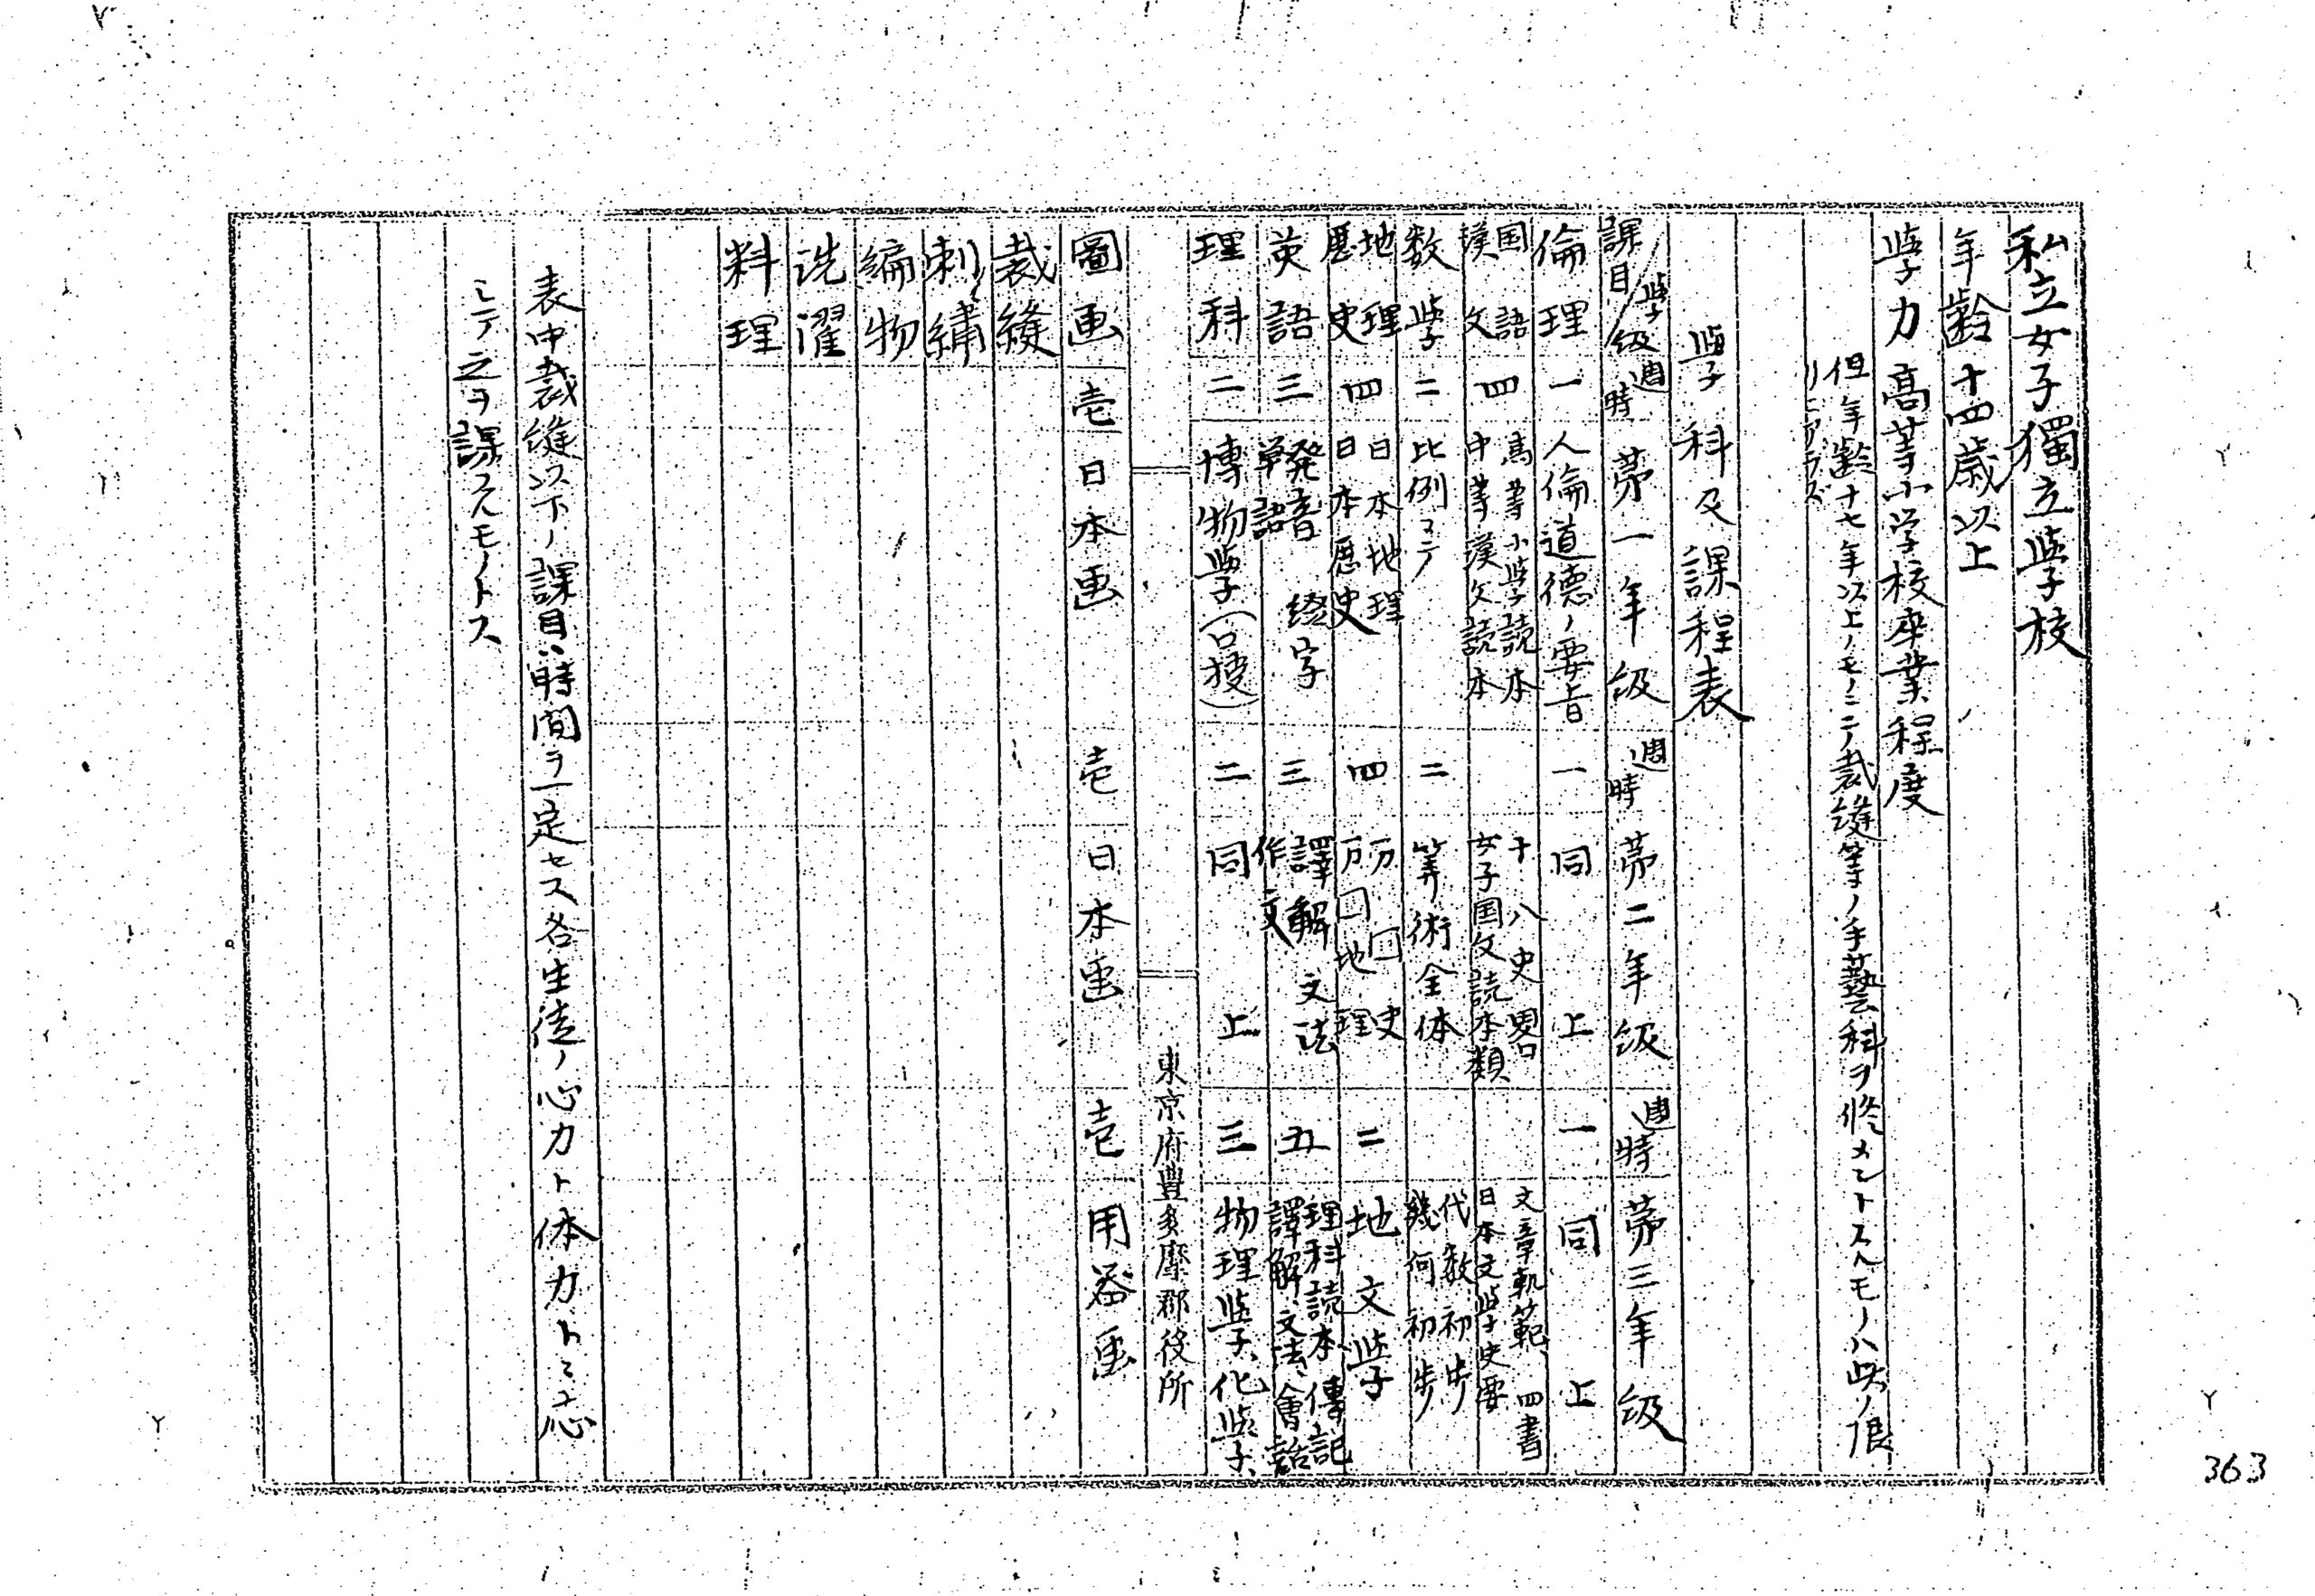 私立女子獨立学校
年齢十四歳以上
学力高等小学校卒業程度
但年齢十七年以上ノモノニテ裁縫等ノ手藝科ヲ修メントスルモノハ此ノ限
リニアラズ
学科及課程表
課目/学級 週時 第一年級 週時 第二年級 週時 第三年級
倫理 一 人倫道徳ノ要旨 一 同上 一 同上
国語 高等小学読本 十八史畧 文章軌範、四書
漢文 四 中等漢文読本 女子国文読本類 日本文学史要
数学 二 比例マテ 二 算術全体 代数初歩
幾何初歩
地理 四 日本地理 四 万国史 二 地文学
歴史 日本歴史 万国地理
英語 三 発音 綴字 三 譯解 文法 五 理科読本、傳記
単語 作文 譯解、文法、會話
理科 二 博物学(口授) 二 同上 三 物理学、化学、
東京府豊多摩郡役所
圖画 壱 日本画 壱 日本画 壱 用器画
裁縫
刺繍
編物
洗濯
料理
表中裁縫以下ノ課目ハ時間ヲ一定セス各生徒ノ心力ト体力トニ応
シテ之ヲ課スモノトス
363